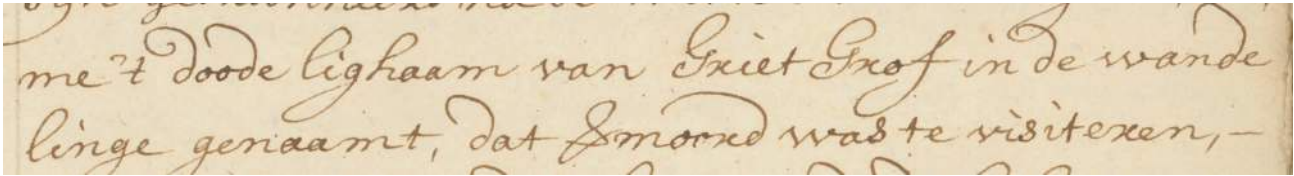 me 't doode lighaam van Griet Grof in de wande
linge genaamt, dat vermoord was te visiteren, –